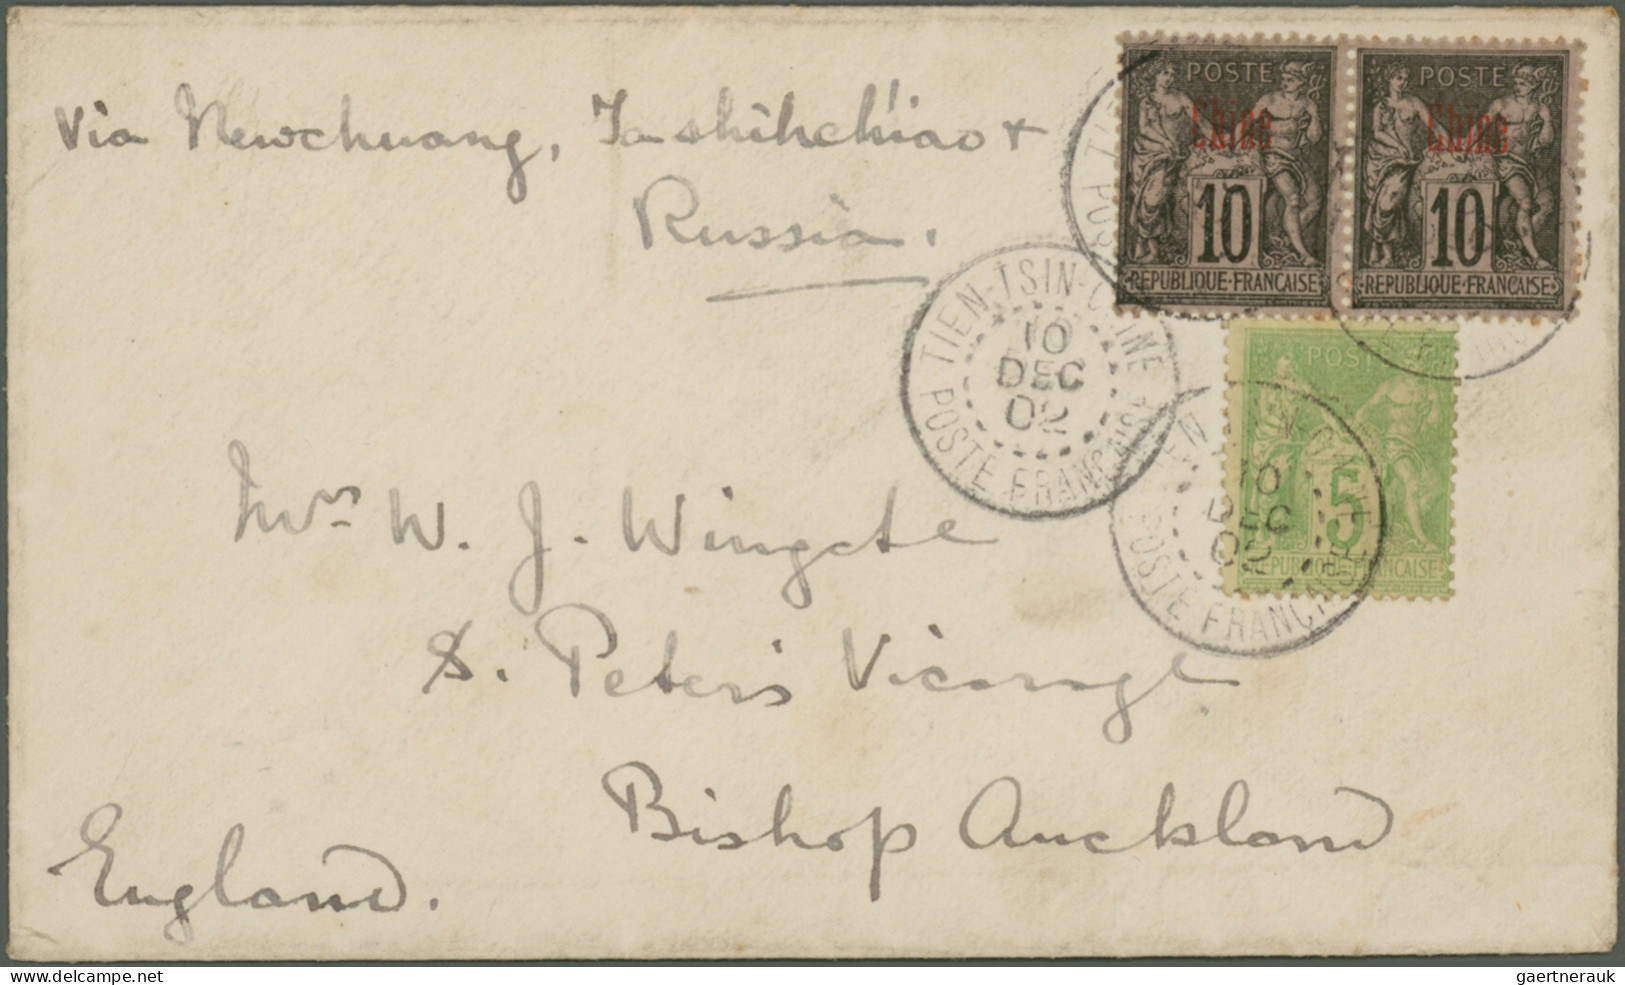 Via Newchuang, Tashihch'iao &
Russia.
POSTE
Chine
10
REPUBLIQUE-FRANÇAISE
POSTE
Chine
10
REPUBLIQUE-FRANÇAISE
TIEN-TSIN-CHINE
10
DEC
02
POSTE FRANÇAISE
POSTE
5
REPUBLIQUE FRANÇAISE
10
DEC
02
POSTE FRANÇAISE
Mrs W. J. Wingate
S. Peter's Vicarage
Bishop Auckland
England.
www.delcampe.net
gaertnerauk